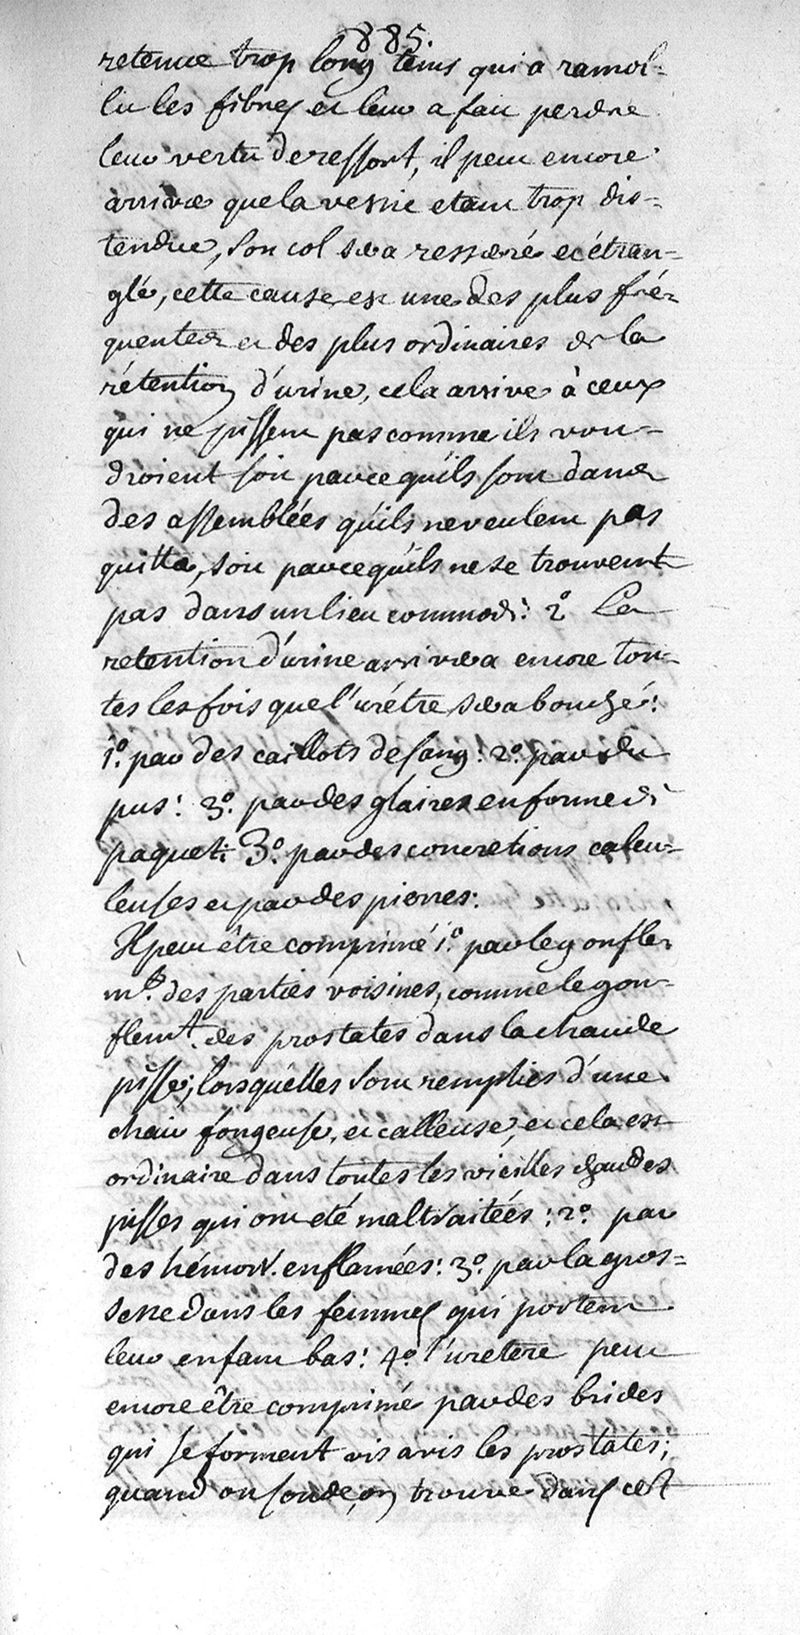 885.
retenue trop long tems qui a ramol-
li les fibres et leur a fait perdre
leur vertu de ressort, il peut encore
arriver que la vessie etant trop dis-
tendue, son col sera resserré et étran-
glé, cette cause est une des plus fré-
quentes et des plus ordinaires de la
rétention d'urine, cela arrive à ceux
qui ne pissent pas comme ils vou-
droient soit parce qu'ils sont dans
des assemblées qu'ils ne veulent pas
quitter, soit parce qu'ils ne se trouvent
pas dans un lieu commode: 2° La
retention d'urine arrivera encore tou-
tes les fois que l'urétre sera bouché:
1° par des caillots de sang: 2° par du
pus: 3° par des glaires en forme de
paquet: 3° par des concretions calcu-
leuses et par des pierres:
Il peut être comprimé 1° par le gonfle-
mt. des parties voisines, comme le gon-
flemt. des prostates dans la chaude
pisse; lorsqu'elles sont remplies d'une
chair fongeuse, et calleuse, et cela est
ordinaire dans toutes les vieilles chaudes
pisses qui ont été maltraitées: 2° par
des hémorr. enflamées: 3° par la gros-
sesse dans les femmes qui portent
leur enfant bas: 4° l'uretere peut
encore être comprimé par des brides
qui se forment vis avis les prostates;
quand on sonde, on trouve dans cet